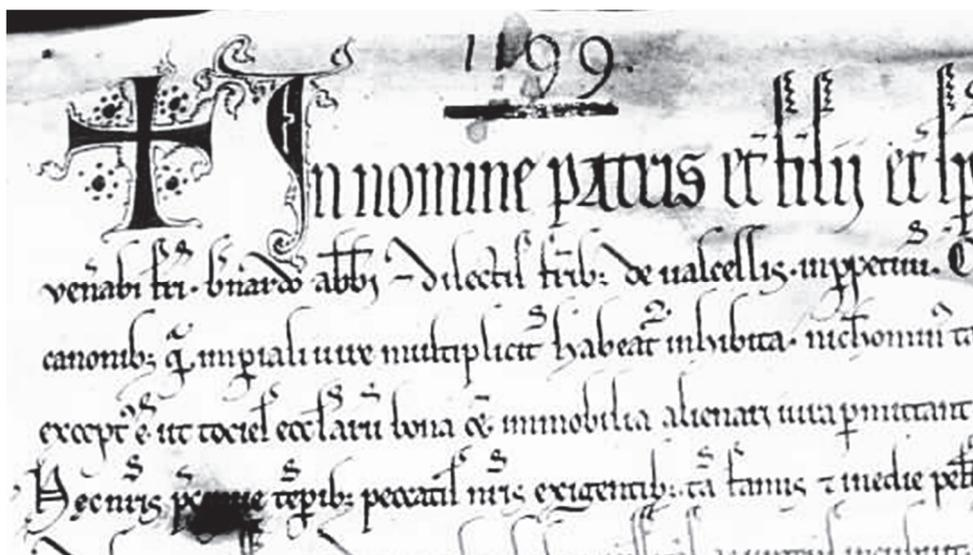 1199
In nomine patris et filii et sp
ven̄abi fr̄i. b̄nardo abb̄i ⁊ dilectis fr̄ib; de ualcellis. inp̄petuū. C
canonib; q̄ īmp̄iali iure multiplicit̄ habeat̄ inhibita. nichomin̄
except̄ ē. ut tociēs eccl̄arū bona & īmmobilia alienari iura p̄mittant
Hec nr̄is tēp̄ib; peccatis nr̄is exigentib; t̄a famis ⁊ inedie